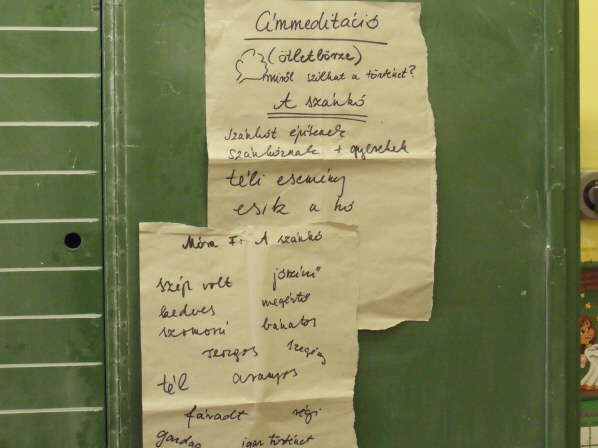 Címmeditáció
(ötletbörze)
miről szólhat a történet?
A szánkó
szánkót építenek
szánkóznak + gyerekek
téli esemény
esik a hó
Móra F.: A szánkó
szép volt jószívű
kedves megértő
szomorú bánatos
rongyos szegény
tél aranyos
fáradt régi
gazdag igaz történet